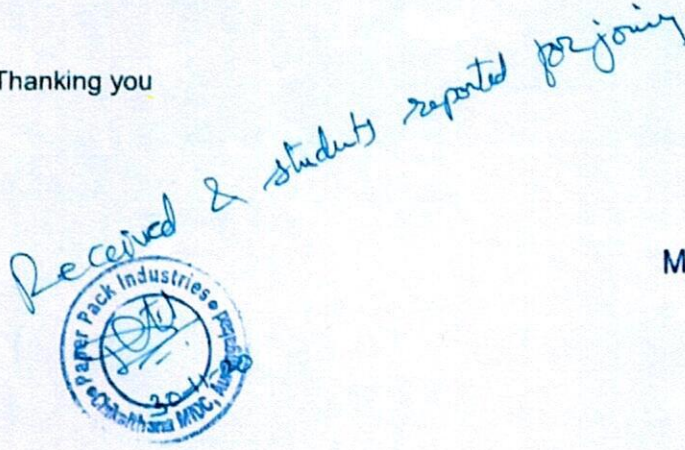 Thanking you
Received & students reported for joining
M
Paper Pack Industries
Chikalthana MIDC, Aurangabad
30-11-20